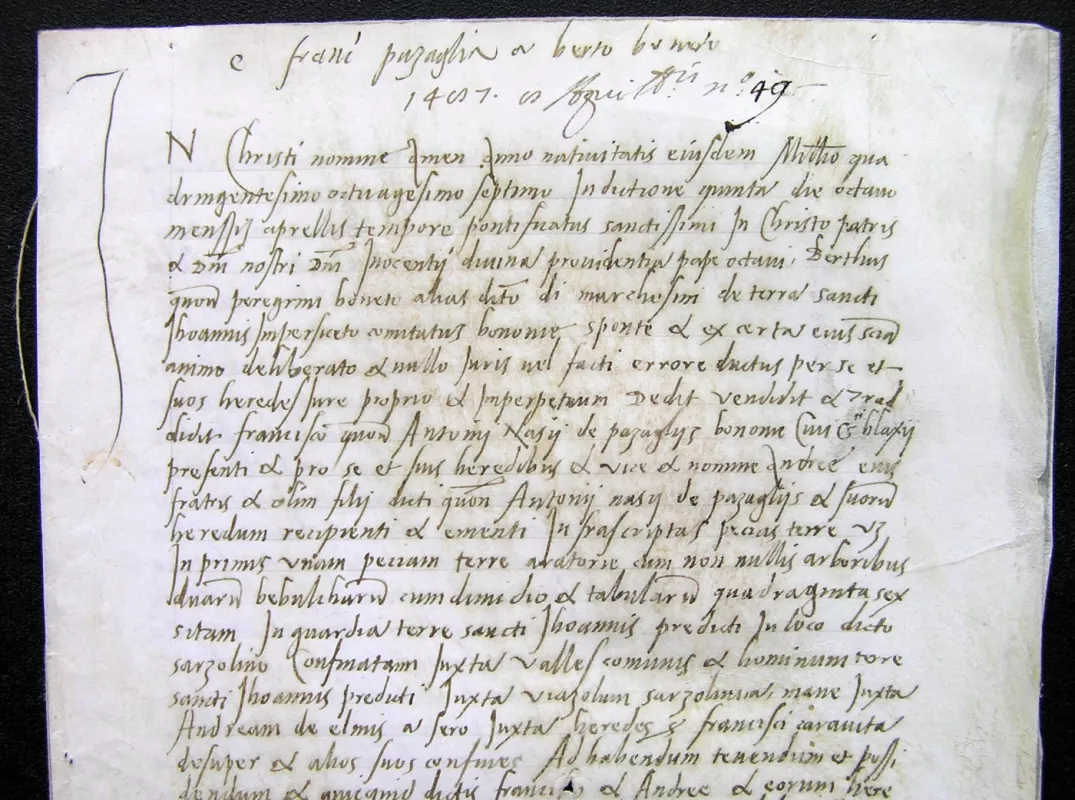 e franci pazaglia a berto boneto
1487. n.º 49
IN Christi nomine Amen Anno nativitatis eiusdem Mill̃o qua
dringentesimo octuagesimo septimo Indictione quinta die octavo
menssis aprellis tempore pontificatus sanctissimi In Christo patris
& Dñi nostri Dñi Inocentij divina providentia pape octavi. Berthus
quon̄ peregrini boneto alias dito di marchosini de terra sancti
Jhoannis Impersiceto comitatus bononie sponte & ex certa eius scīa
animo deliberato & nullo Juris vel facti errore ductus per se et
suos heredes Jure proprio & Imperpetuum Dedit vendidit & Trad
didit francisco quon̄ Antonij Nasij de pazaglijs bonono Civi blaxij
presenti & pro se et suis heredibus & vice & nomine Andree eius
fratris & olim filij dicti quon̄ Antonij nasij de pazaglijs & suorū
heredum recipienti & ementi Infrascriptas pecias terre vz
In primis unam peciam terre aratorie cum non nullis arboribus
duarū bebulcharū cum dimidio & tabularū quadraginta sex
sitam In guardia terre sancti Jhoannis predicti In loco dicto
sarzolino Confinatam Juxta valles comunis & hominum terre
sancti Jhoannis predicti Juxta viazolum sarzolinum, mane Juxta
Andream de elmis a sero Juxta heredes francisci caravita
desuper & alios suos confines Ad habendum tenendum et possi
dendum & quicquid dictis francisco & Andree & eorum here